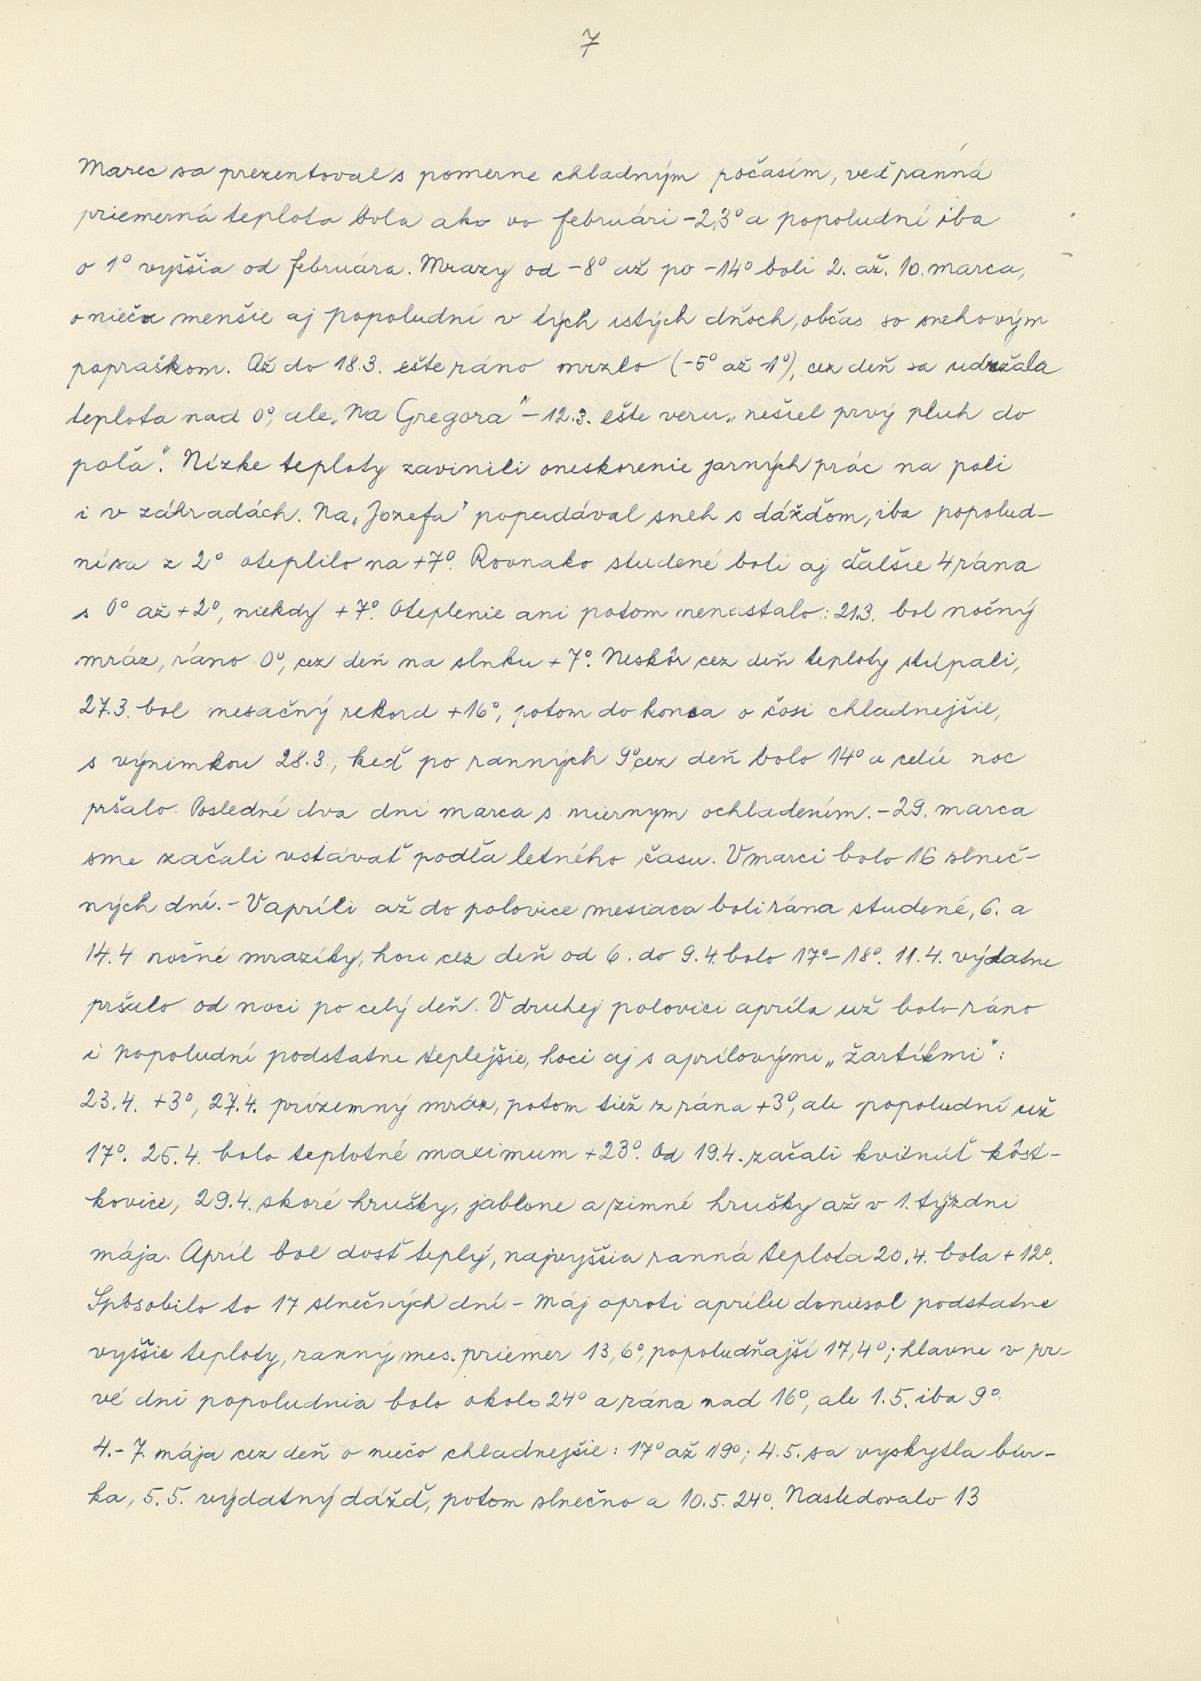 7
Marec sa prezentoval s pomerne chladným počasím, veď ranná
priemerná teplota bola ako vo februári -2,3° a popoludní iba
o 1° vyššia od februára. Mrazy od -8° až po -14° boli 2. až. 10. marca,
o niečo menšie aj popoludní v tých istých dňoch, občas so snehovým
popraškom. Až do 18.3. ešte ráno mrzlo (-5° až -1°), cez deň sa udržala
teplota nad 0°, ale „Na Gregora" - 12.3. ešte veru „nešiel prvý pluh do
poľa". Nízke teploty zavinili oneskorenie jarných prác na poli
i v záhradách. Na „Jozefa" popadával sneh s dážďom, iba popolud-
ní sa z 2° oteplilo na +7°. Rovnako studené boli aj ďalšie 4 rána
s 0° až +2°, niekdy +7°. Oteplenie ani potom nenastalo: 21.3. bol nočný
mráz, ráno 0°, cez deň na slnku +7°. Neskôr cez deň teploty stúpali,
27.3. bol mesačný rekord +16°, potom do konca o čosi chladnejšie,
s výnimkou 28.3., keď po ranných 9° cez deň bolo 14° a celú noc
pršalo. Posledné dva dni marca s miernym ochladením. - 29. marca
sme začali vstávať podľa letného času. V marci bolo 16 slneč-
ných dní. - V apríli až do polovice mesiaca boli rána studené, 6. a
14.4 nočné mrazíky, hoci cez deň od 6. do 9.4. bolo 17° - 18°. 11.4. výdatne
pršalo od noci po celý deň. V druhej polovici apríla už bolo ráno
i popoludní podstatne teplejšie, hoci aj s aprílovými „žartíkmi":
23.4. +3°, 27.4. prízemný mráz, potom tiež z rána +3°, ale popoludní už
17°. 25.4. bolo teplotné maximum +23°. Od 19.4. začali kvitnúť kôst-
kovice, 29.4. skoré hrušky, jablone a zimné hrušky až v 1. týždni
mája. Apríl bol dosť teplý, najvyššia ranná teplota 20.4. bola +12°.
Spôsobilo to 17 slnečných dní - Máj oproti aprílu doniesol podstatne
vyššie teploty, ranný mes. priemer 13,6°, popoludňajší 17,4°; hlavne v pr-
vé dni popoludnia bolo okolo 24° a rána nad 16°, ale 1.5. iba 9°.
4.- 7. mája cez deň o niečo chladnejšie: 17° až 19°; 4.5. sa vyskytla búr-
ka, 5.5. výdatný dážď, potom slnečno a 10.5. 24°. Nasledovalo 13